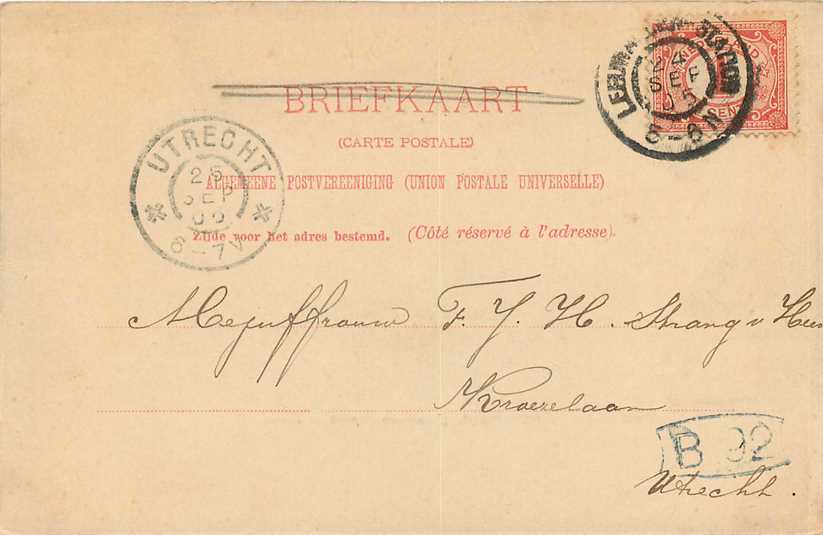 BRIEFKAART
(CARTE POSTALE)
ALGEMEENE POSTVEREENIGING (UNION POSTALE UNIVERSELLE)
Zijde voor het adres bestemd. (Côté réservé à l'adresse).
UTRECHT
25
SEP
6-7V
STATION
SEP
CENT
Mejuffrouw F. J. H. Strang v Hees
Kroezelaan
B 92
Utrecht.